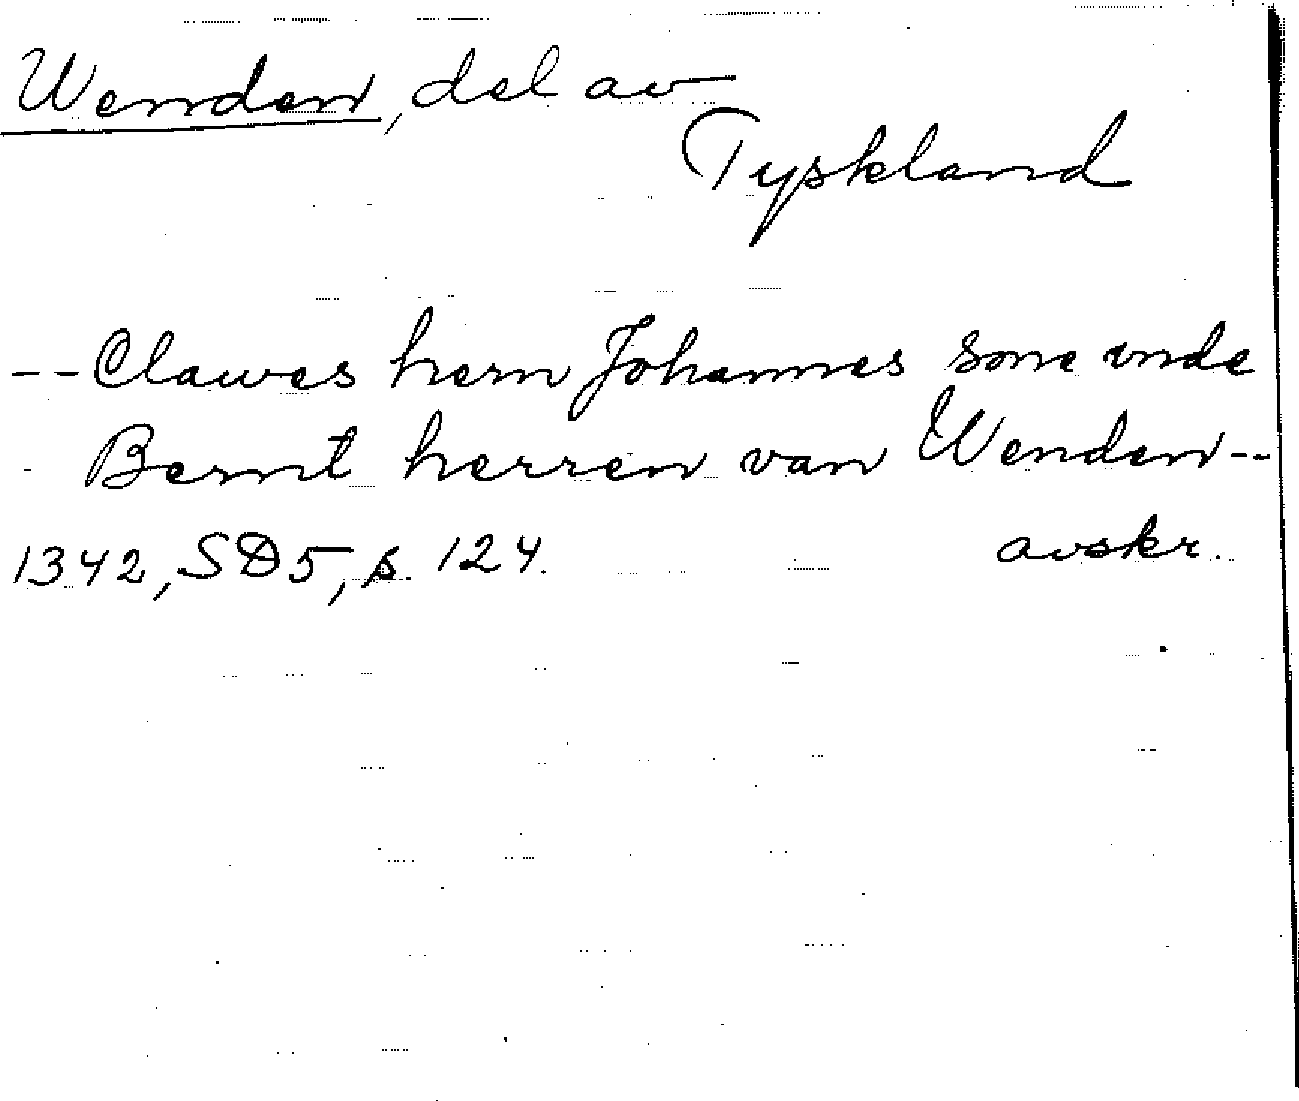 Wenden, del av
Tyskland
-- Clawes hern Johannes sone vnde
- Bernt herren van Wenden --
1342, SD5, s. 124. avskr.